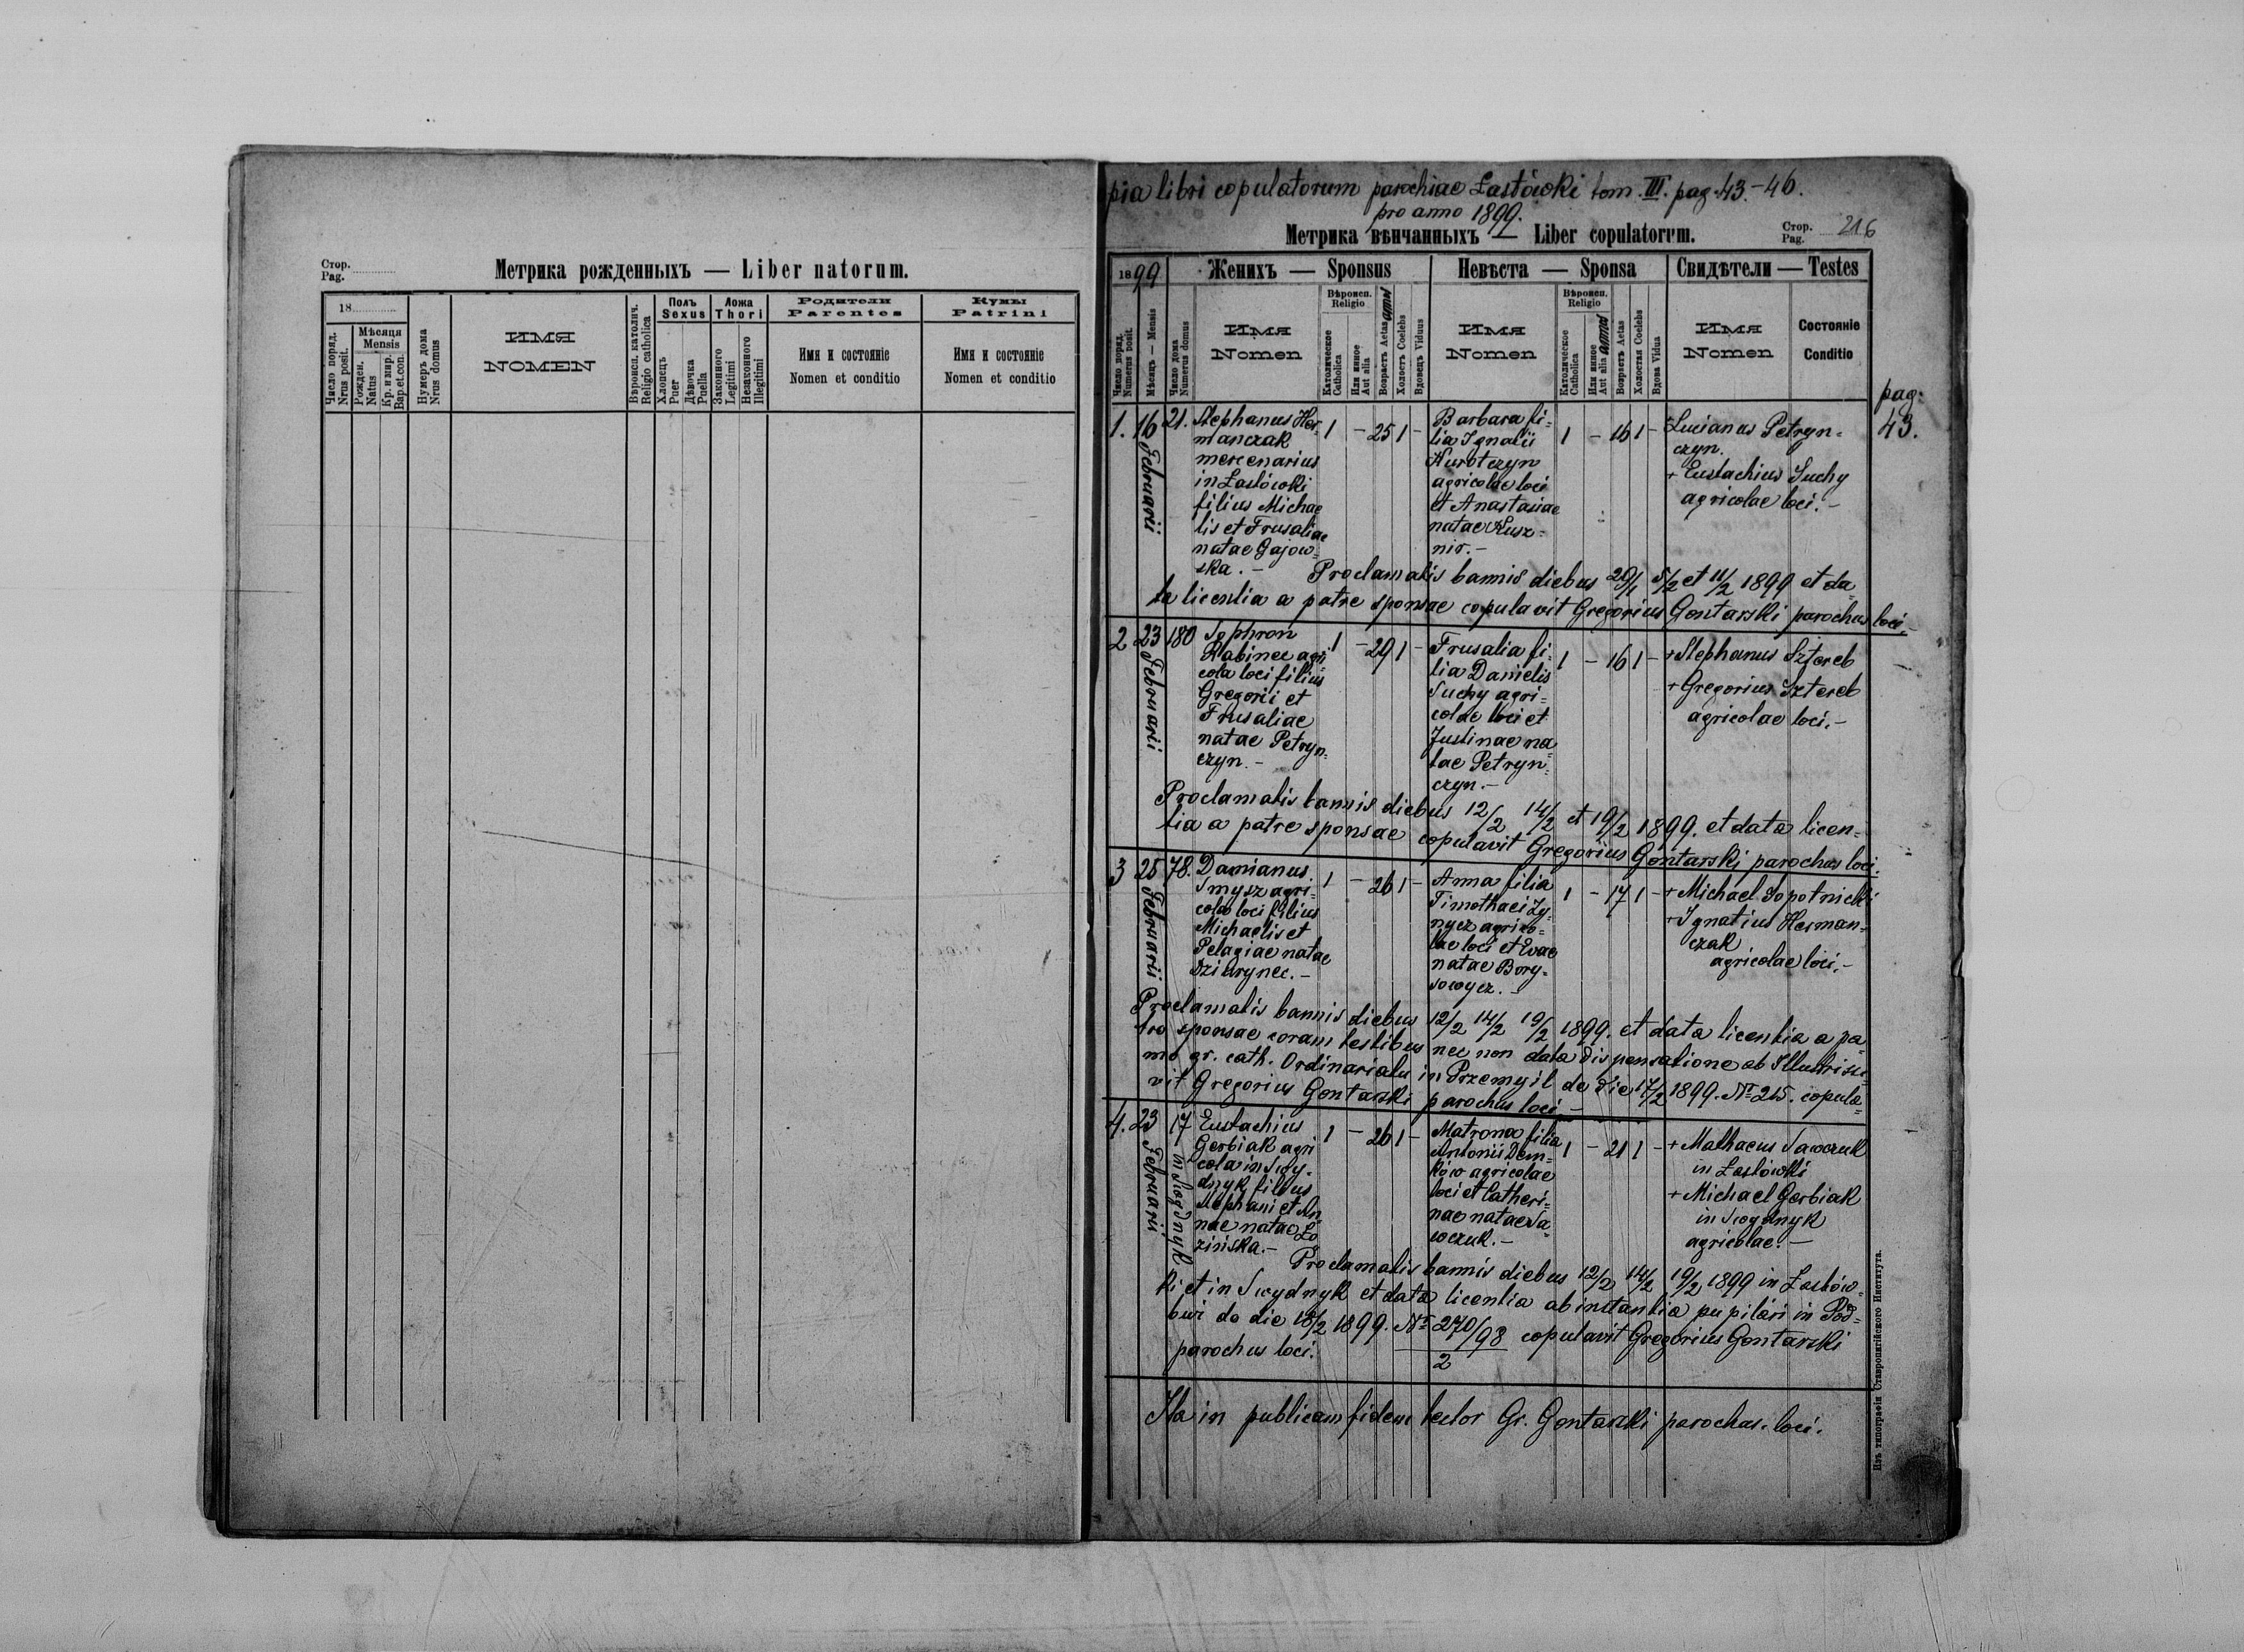 Стор.
Pag.
Метрика рожденныхъ — Liber natorum.
18
Число поряд.
Nrus posit.
Мѣсяця
Mensis
Рожден.
Natus
Кр. и мир.
Bap.et.con.
Нумеръ дома
Nrus domus
ИМЯ
NOMEN
Religio catholica
Полъ
Sexus
Хлопецъ
Puer
Дѣвочка
Puella
Ложа
Thori
Законного
Legitimi
Незаконного
Illegitimi
Родители
Parentes
Имя и состояніе
Nomen et conditio
Кумы
Patrini
Имя и состояніе
Nomen et conditio
pia libri copulatorum parochiae Łastówki tom. III. pag. 43-46.
pro anno 1899.
Метрика вѣнчанныхъ — Liber copulatorum.
Стор.
Pag.
216
1899
Число поряд.
Numerus posit.
Мѣсяць — Mensis
Число дома
Numerus domus
Женихъ — Sponsus
Имя
Nomen
Вѣроисп.
Religio
Католическое
Catholica
Или инное
Aut alia
Возрастъ Aetas anni
Холостъ Coelebs
Вдовецъ Viduus
Невѣста — Sponsa
Имя
Nomen
Вѣроисп.
Religio
Католическое
Catholica
Или инное
Aut alia anni
Возрастъ Aetas
Холостая Coelebs
Вдова Vidua
Свидѣтели — Testes
Имя
Nomen
Состояніе
Conditio
pag:
43.
1.
16
Februarii
21.
Stephanus Her-
manczak
mercenarius
in Łastówki
filius Michae
lis et Frusaliae
natae Gajow-
ska. -
1 - 25 1 -
Barbara fi-
lia Ignatii
Kurotczyn
agricolae loci
et Anastasiae
natae Kusz-
nir. -
1 - 16 1 -
Lucianus Petryn-
czyn.
+ Eustachius Suchy
agricolae loci. -
Proclamatis bannis diebus 29/1 5/2 et 11/2 1899 et da-
ta licentia a patre sponsae copulavit Gregorius Gontarski parochus loci. -
2
23
Februarii
180
Sophron
Rabinec agri-
cola loci filius
Gregorii et
Frusaliae
natae Petryn-
czyn. -
1 - 29 1 -
Frusalia fi-
lia Danielis
Suchy agri-
colae loci et
Justinae na
tae Petryn-
czyn. -
1 - 16 1 -
+ Stephanus Sztereb
+ Gregorius Sztereb
agricolae loci. -
Proclamatis bannis diebus 12/2 14/2 et 19/2 1899. et data licen-
tia a patre sponsae copulavit Gregorius Gontarski parochus loci.
3
25
Februarii
78.
Damianus
Smysz agri-
cola loci filius
Michaelis et
Pelagiae natae
Dziurynec. -
1 - 26 1 -
Anna filia
Timothaei Zy-
nycz agrico-
lae loci et Evae
natae Bory-
sowycz. -
1 - 17 1 -
+ Michael Sopotnicki
+ Ignatius Herman-
czak
agricolae loci. -
Proclamatis bannis diebus 12/2 14/2 19/2 1899. et data licentia a pa-
tre sponsae coram testibus nec non data dispensatione ab Illustrissi-
mo gr. cath. Ordinariatu in Przemyśl de die 17/2 1899. Nr 215. copula-
vit Gregorius Gontarski parochus loci -
4.
23
Februarii
17
in Swydnyk
Eustachius
Gerbiak agri
cola in Swy-
dnyk filius
Stephani et An
nae natae Ło
zińska. -
1 - 26 1 -
Matrona filia
Antonii Dem-
ków agricolae
loci et Catheri-
nae natae Sa-
wczuk. -
1 - 21 1 -
+ Mathaeus Sawczuk
in Łastówki
+ Michael Gerbiak
in Swydnyk
agricolae. -
Proclamatis bannis diebus 12/2 14/2 19/2 1899 in Łastów-
ki et in Swydnyk et data licentia ab instantia pupilari in Pod-
buż de die 18/2 1899. Nr 270/98 copulavit Gregorius Gontarski
2
parochus loci.
Ita in publicam fidem testor Gr. Gontarski parochus loci.
Изъ типографіи Ставропигійского Института.